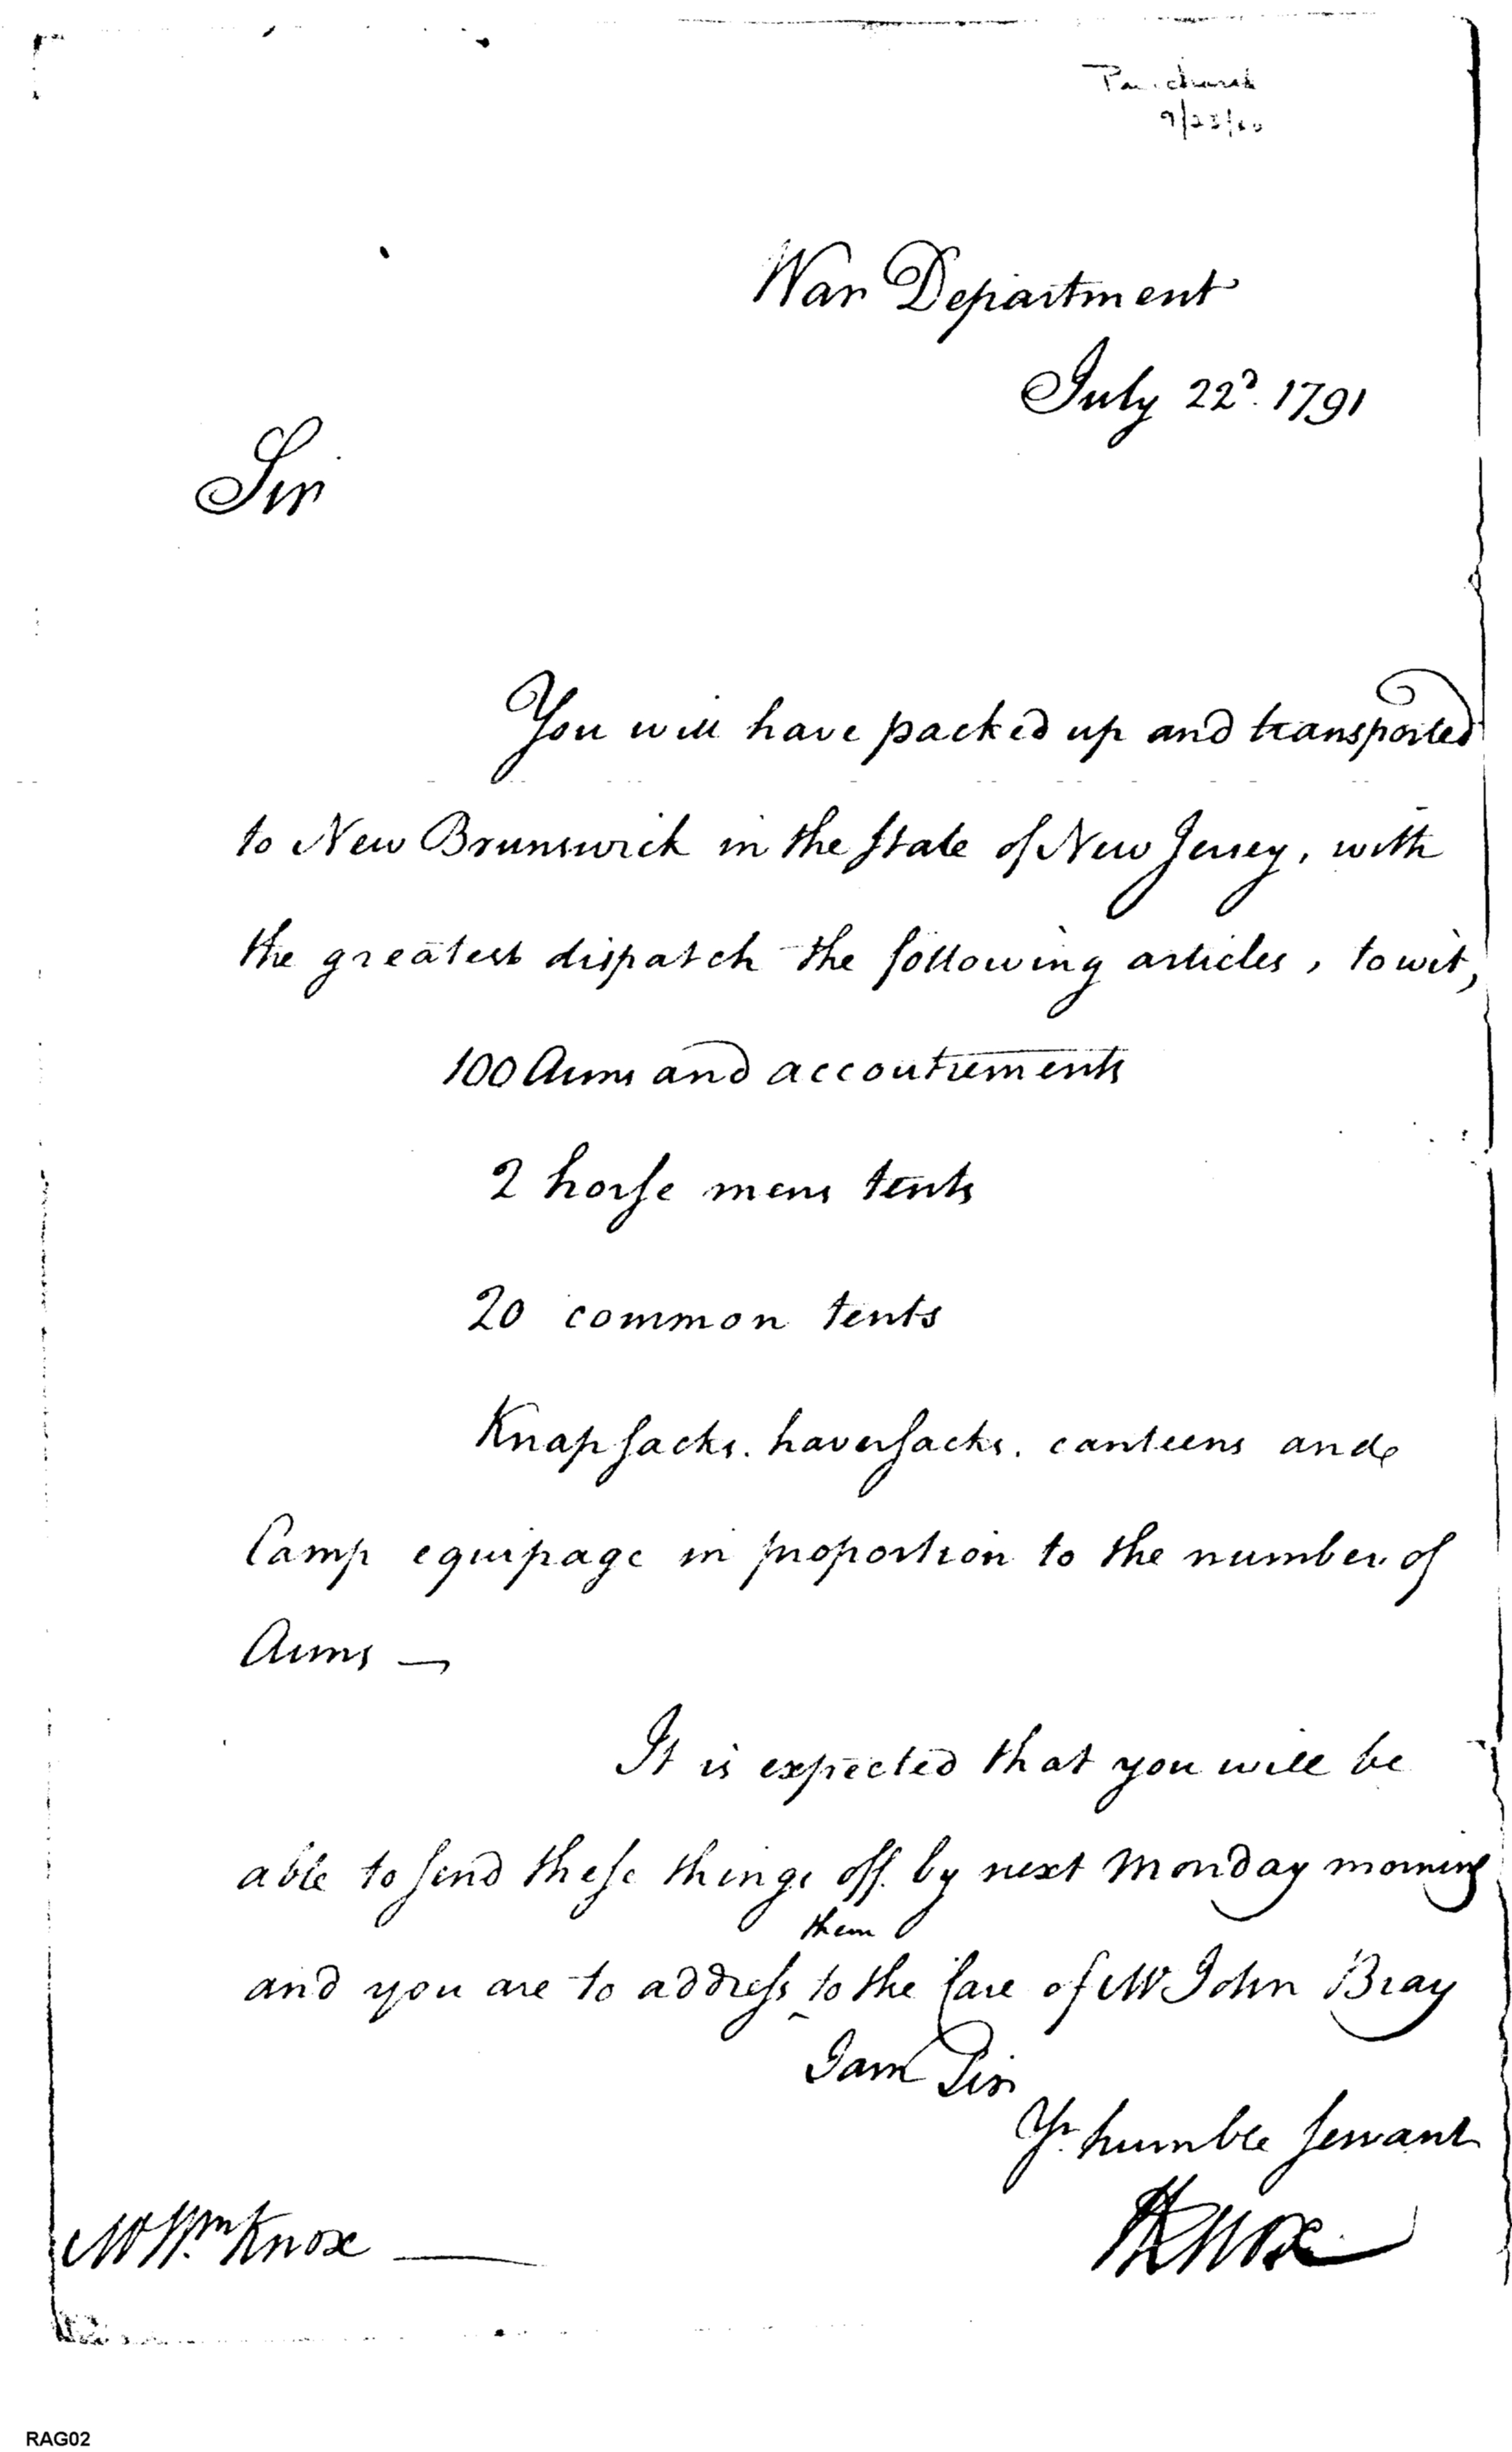 9/23/60
War Department
July 22d. 1791
Sir
You will have packed up and transported
to New Brunswick in the State of New Jersey, with
the greatest dispatch the following articles, to wit,
100 Arms and accoutrements
2 horse mens tents
20 common tents
Knapsacks. haversacks. canteens and
Camp equipage in proportion to the number of
Arms —
It is expected that you will be
able to send these things off by next Monday morning
them
and you are to address ‸ to the Care of Mr John Bray
I am Sir
Yr. humble servant
HKnox
Mr Wm. Knox —
RAG02